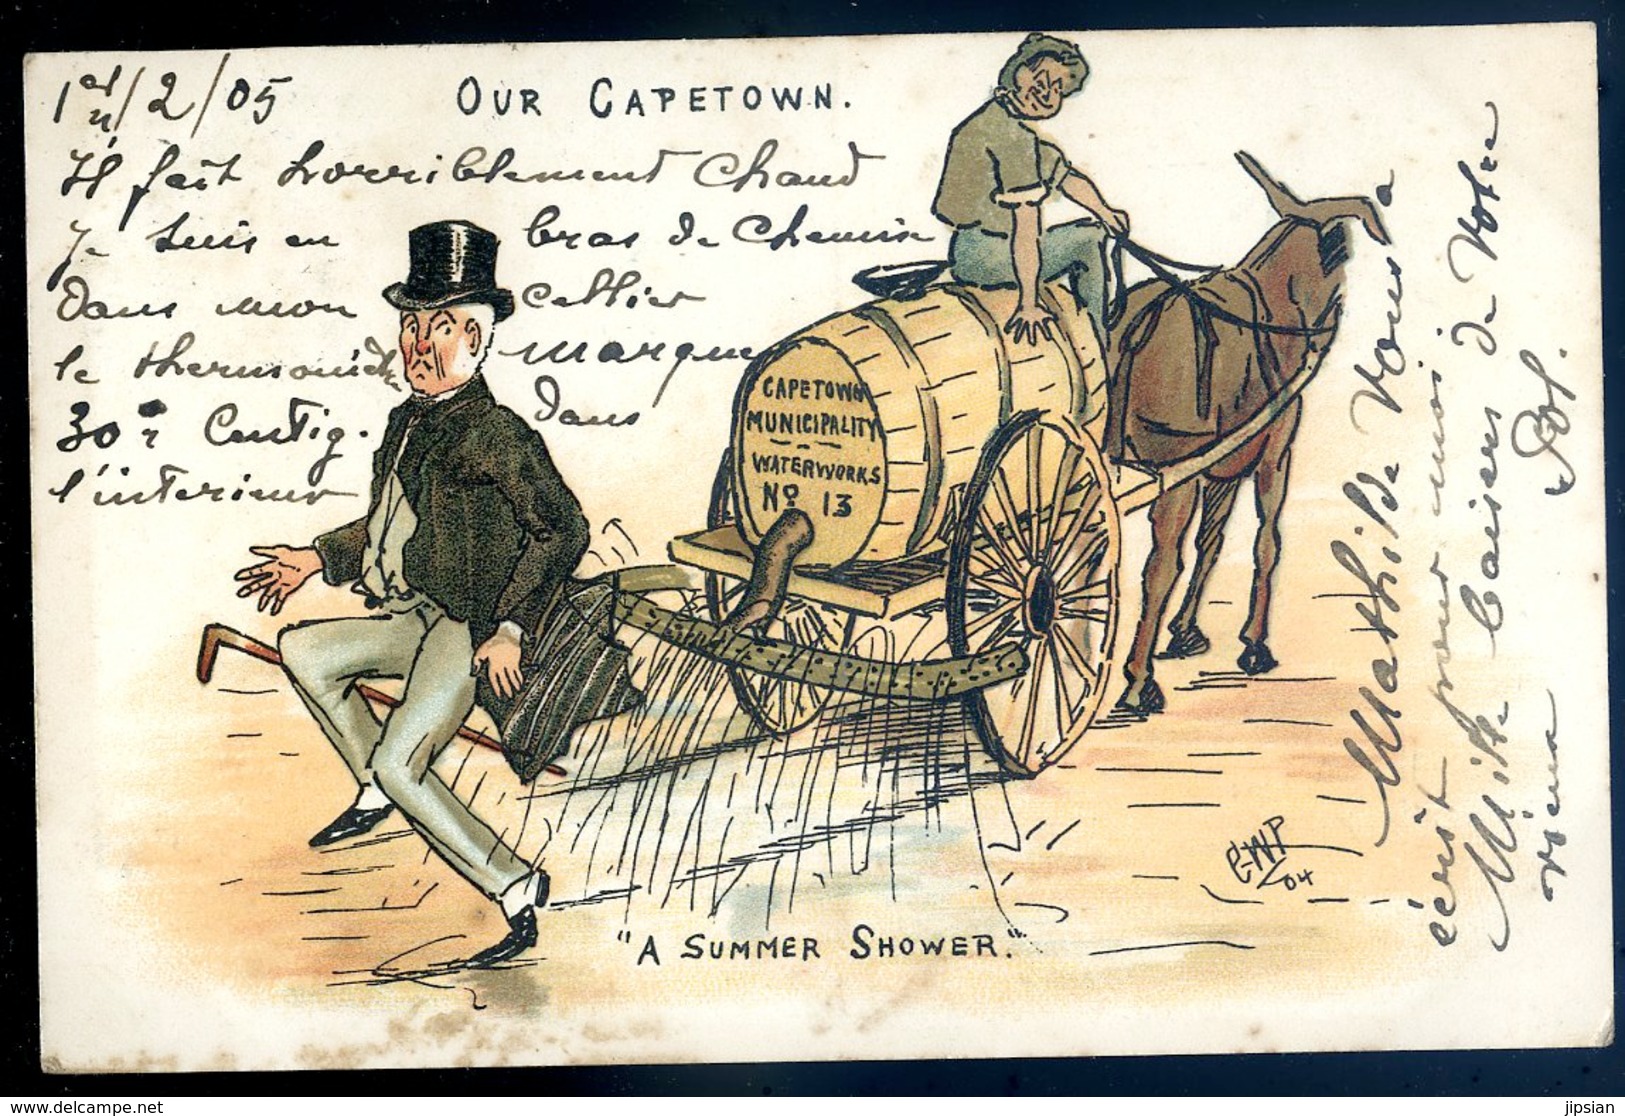 1er/2/05
OUR CAPETOWN.
Il fait horriblement chaud
Je suis en bras de chemise
dans mon cellier
le thermomètre marque
30° Centig. dans
l'interieur
CAPETOWN
MUNICIPALITY
WATERWORKS
No 13
Mathilde vous a
écrit pour moi
Mille baisers de votre
vieux
Pol.
GWP
/04
"A SUMMER SHOWER."
jipsian